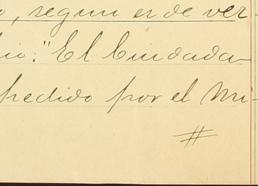 , segun es de ver-
: "El Ciudada
pedido por el Mi-
#